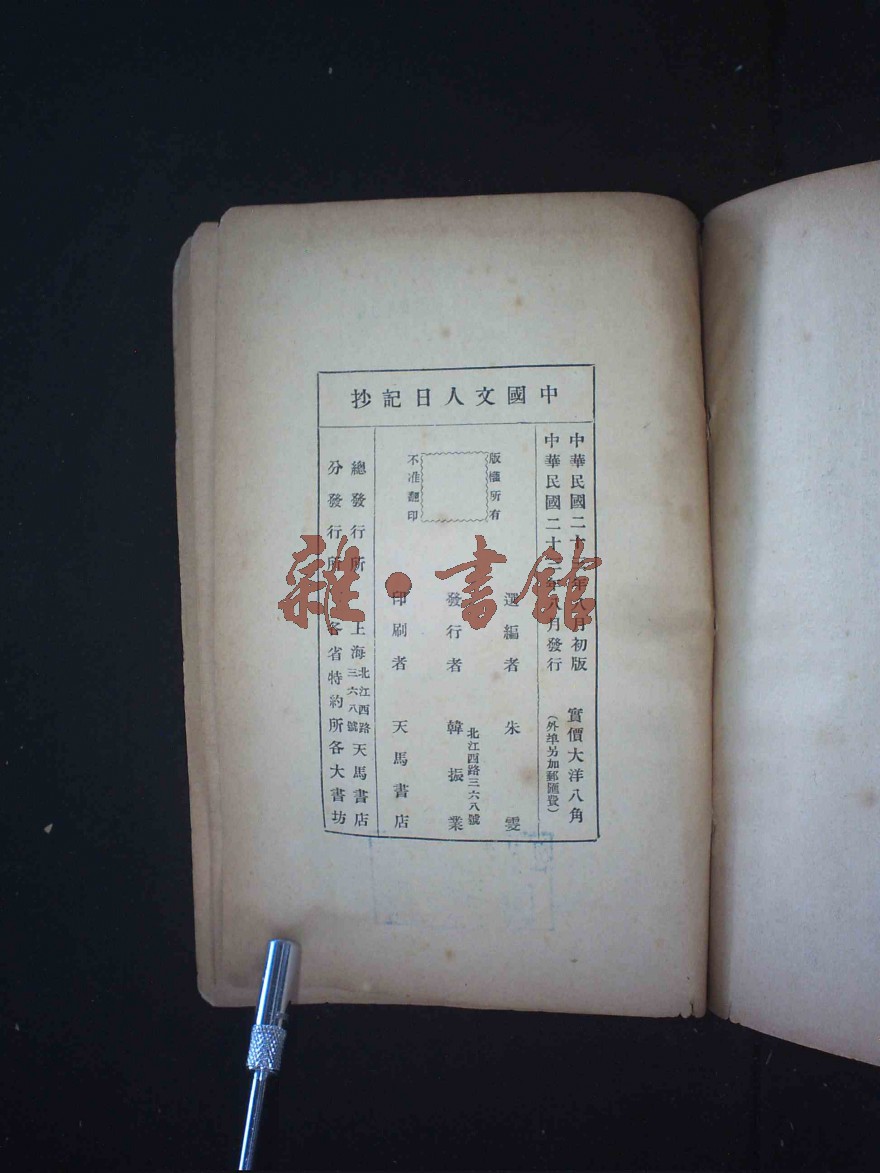 中國文人日記抄
中華民國二十年八月初版 實價大洋八角
中華民國二十三年八月發行 (外埠另加郵匯費)
版權所有
不准翻印
選編者 朱雯
發行者 北江西路三六八號 韓振業
印刷者 天馬書店
總發行所 上海北江西路三六八號天馬書店
分發行所 各省特約所各大書坊
雜·書館